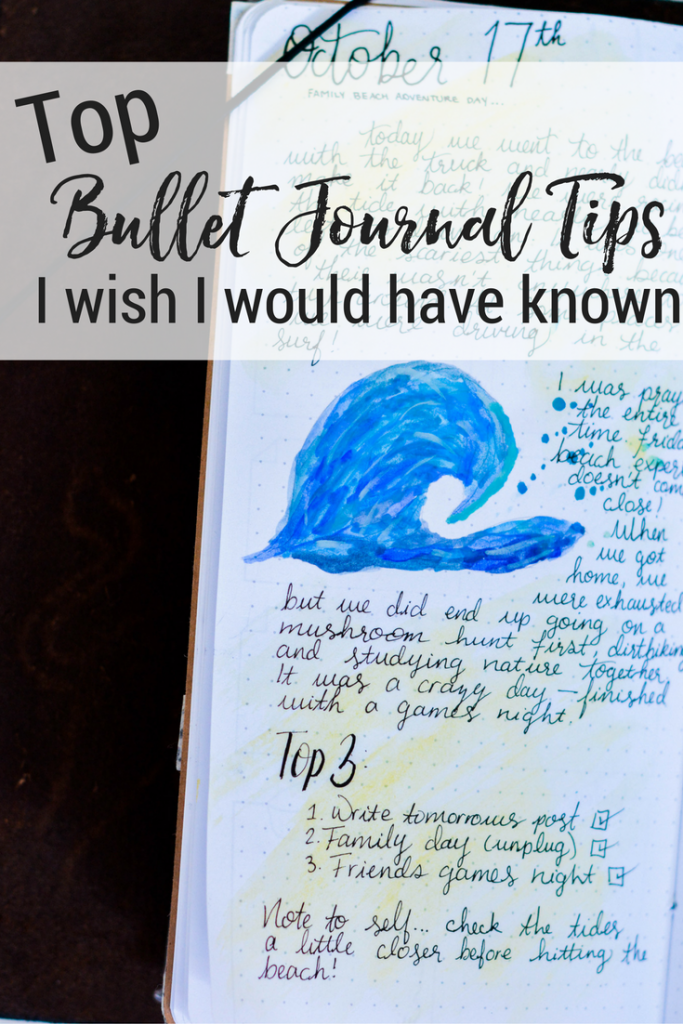 October 17th
FAMILY BEACH ADVENTURE DAY...
Top
Bullet Journal Tips
I wish I would have known
today we went to the
with the truck and
make it back!
the tide with
the scariest things
their wasn't in
driving in the
surf!
I was pray
the entire
time. Frida
beach exper
doesn't com
close!
When
we got
home, we
were exhausted
but we did end up going on a
mushroom hunt first, dirtbiking
and studying nature together.
It was a crazy day - finished
with a games night.
Top 3
1. Write tomorrows post
2. Family day (unplug)
3. Friends games night
Note to self... check the tides
a little closer before hitting the
beach!